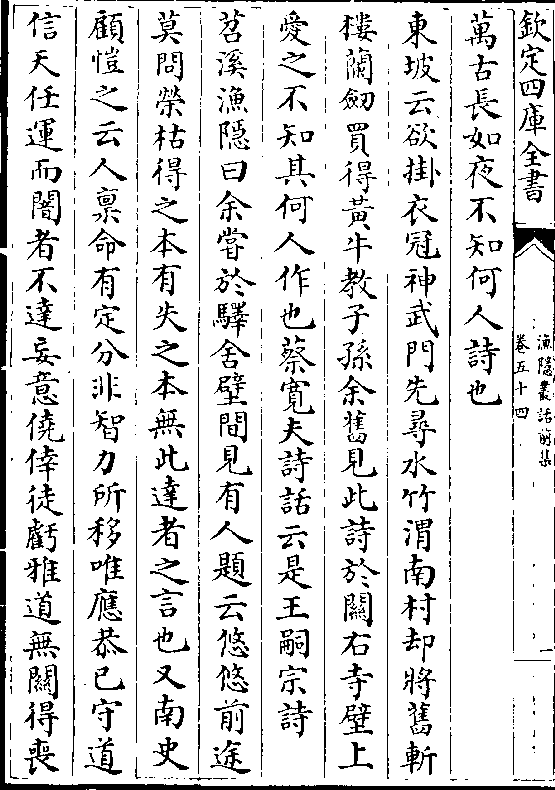 欽定四庫全書
漁隱叢話前集
卷五十四
一
萬古長如夜不知何人詩也
東坡云欲掛衣冠神武門先尋水竹渭南村却將舊斬
樓蘭劒買得黃牛教子孫余舊見此詩於關右寺壁上
愛之不知其何人作也蔡寛夫詩話云是王嗣宗詩
苕溪漁隱曰余嘗於驛舍壁間見有人題云悠悠前途
莫問榮枯得之本有失之本無此達者之言也又南史
顧愷之云人禀命有定分非智力所移唯應恭已守道
信天任運而闇者不達妄意僥倖徒虧雅道無關得喪